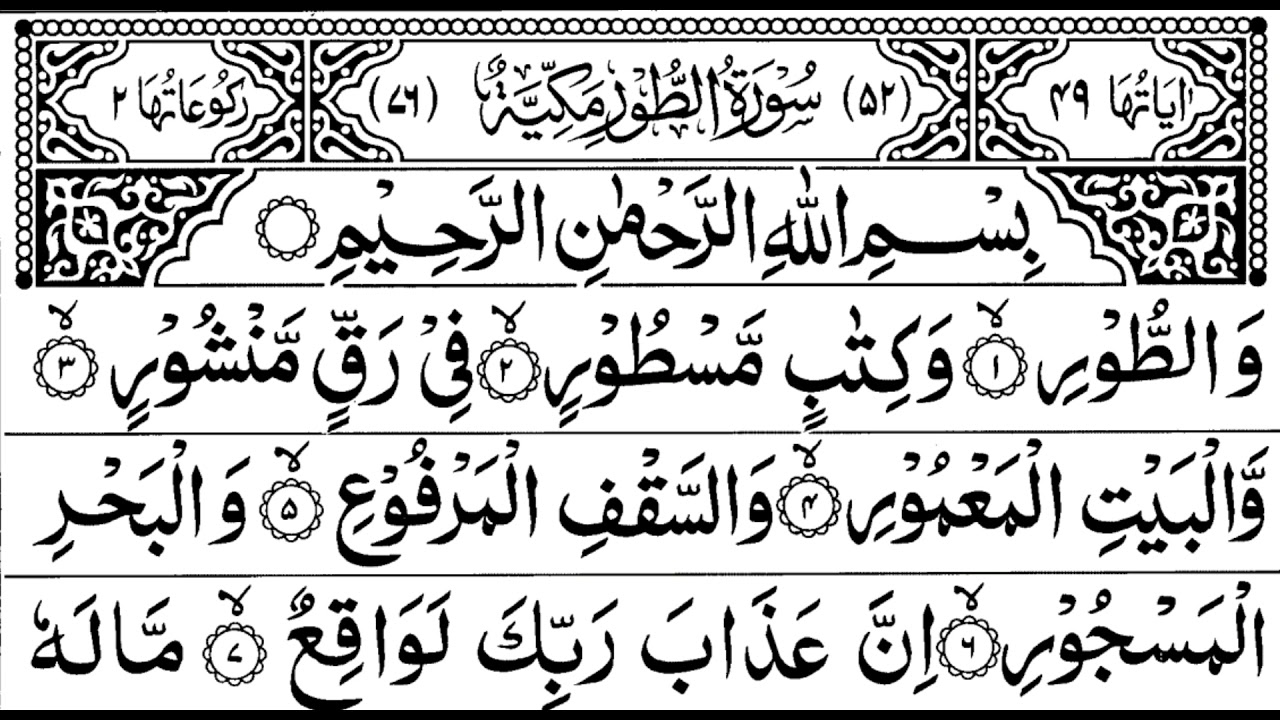 اٰيَاتُهَا ۴۹ (۵۲) سُوْرَةُ الطُّوْرِ مَكِّيَّةٌ (۷۶) رُكُوْعَاتُهَا ۲
بِسْمِ اللّٰهِ الرَّحْمٰنِ الرَّحِيْمِ
وَالطُّوْرِ ۙ‏﴿۱﴾ وَكِتٰبٍ مَّسْطُوْرٍ ۙ‏﴿۲﴾ فِىْ رَقٍّ مَّنْشُوْرٍ ۙ‏﴿۳﴾
وَّالْبَيْتِ الْمَعْمُوْرِ ۙ‏﴿۴﴾ وَالسَّقْفِ الْمَرْفُوْعِ ۙ‏﴿۵﴾ وَالْبَحْرِ
الْمَسْجُوْرِ ۙ‏﴿۶﴾ اِنَّ عَذَابَ رَبِّكَ لَوَاقِعٌ ۙ‏﴿۷﴾ مَّا لَهٗ